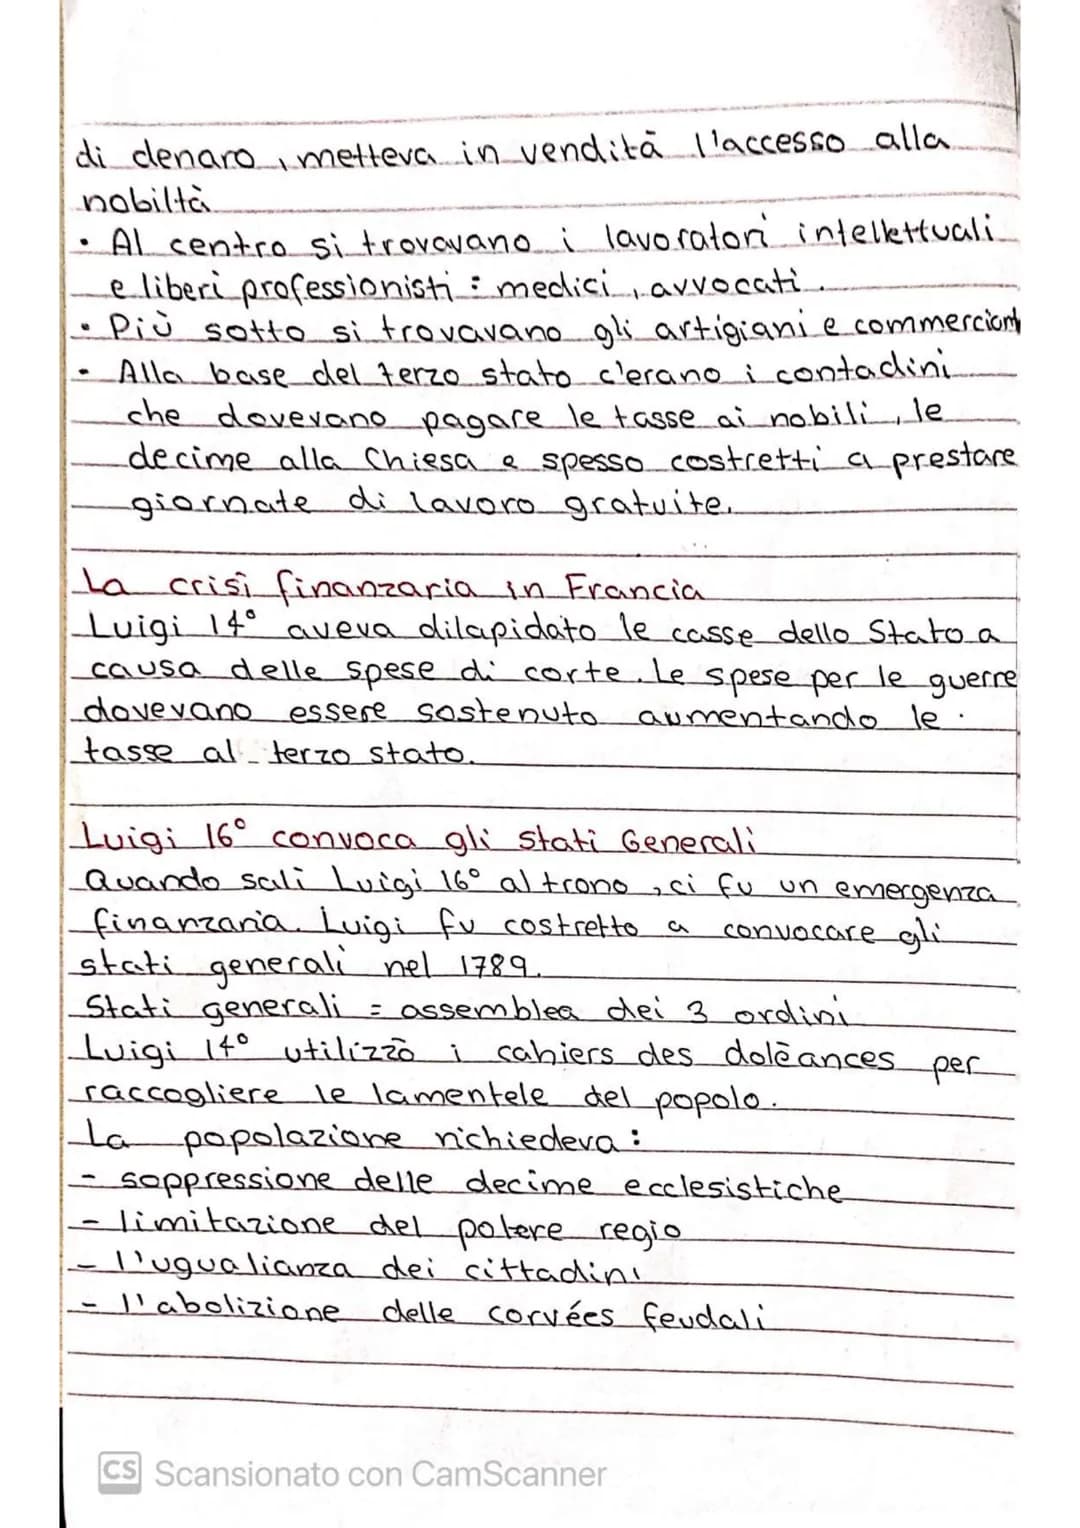 di denaro, metteva in vendità l'accesso alla
nobiltà
• Al centro si trovavano i lavoratori intellettuali
e liberi professionisti: medici, avvocati.
• Più sotto si trovavano gli artigiani e commercianti
• Alla base del terzo stato c'erano i contadini
che dovevano pagare le tasse ai nobili, le
decime alla Chiesa e spesso costretti a prestare
giornate di lavoro gratuite.
La crisi finanzaria in Francia
Luigi 14° aveva dilapidato le casse dello Stato a
causa delle spese di corte. Le spese per le guerre
dovevano essere sostenuto aumentando le
tasse al terzo stato.
Luigi 16° convoca gli Stati Generali
Quando salì Luigi 16° al trono, ci fu un emergenza
finanzaria. Luigi fu costretto a convocare gli
stati generali nel 1789.
Stati generali = assemblea dei 3 ordini
Luigi 14° utilizzò i cahiers des dolèances per
raccogliere le lamentele del popolo.
La popolazione richiedeva:
- soppressione delle decime ecclesistiche
- limitazione del potere regio
- l'ugualianza dei cittadini
- l'abolizione delle corvées feudali
CS Scansionato con CamScanner